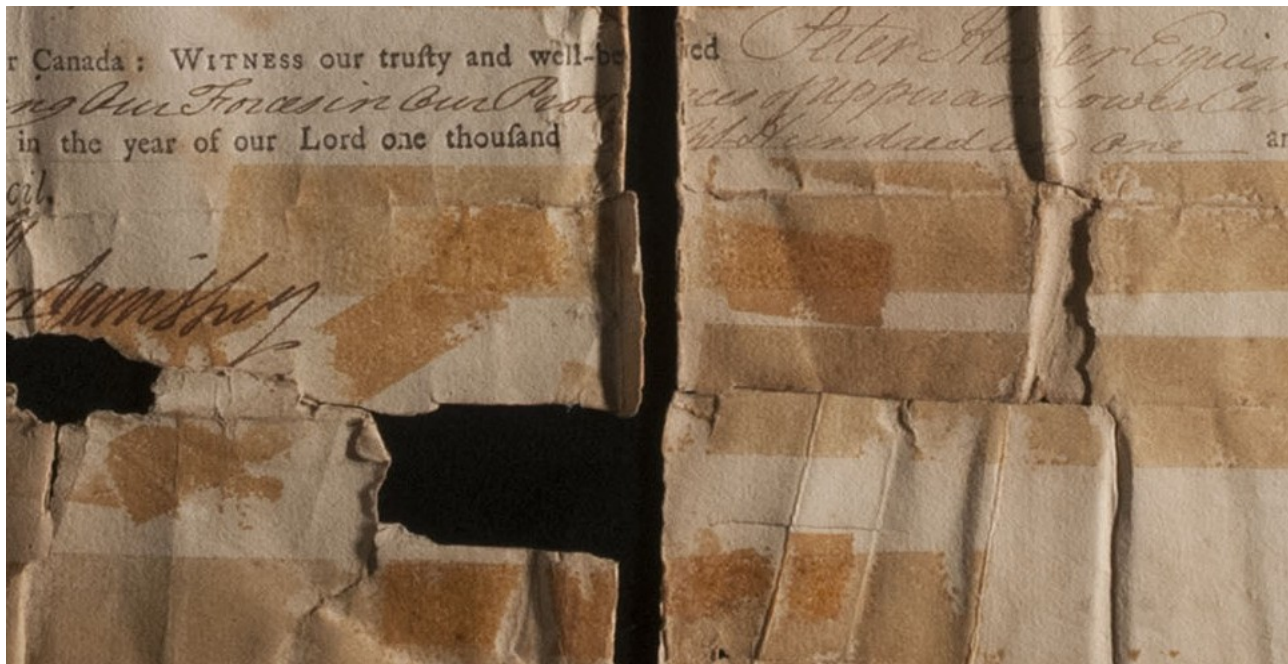 r Canada : WITNESS our truſty and well-be ved Peter Hunter Esquir
ng Our Forces in Our Prov nces of Upper and Lower Can
in the year of our Lord one thouſand ht Hundred and one an
cil.